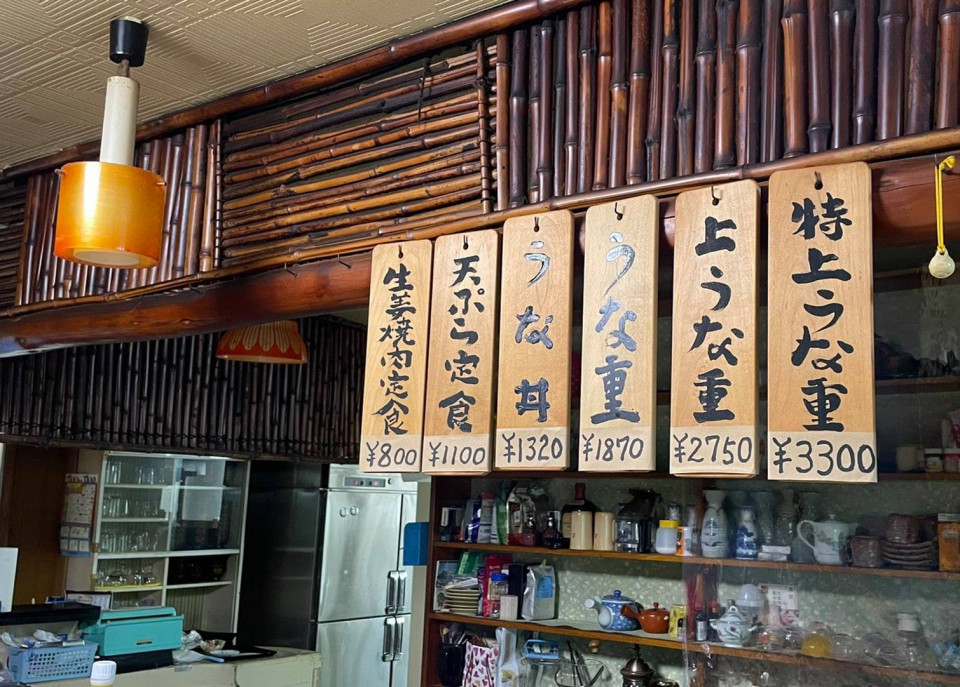 特上うな重
¥3300
上うな重
¥2750
うな重
¥1870
うな丼
¥1320
天ぷら定食
¥1100
生姜焼肉定食
¥800